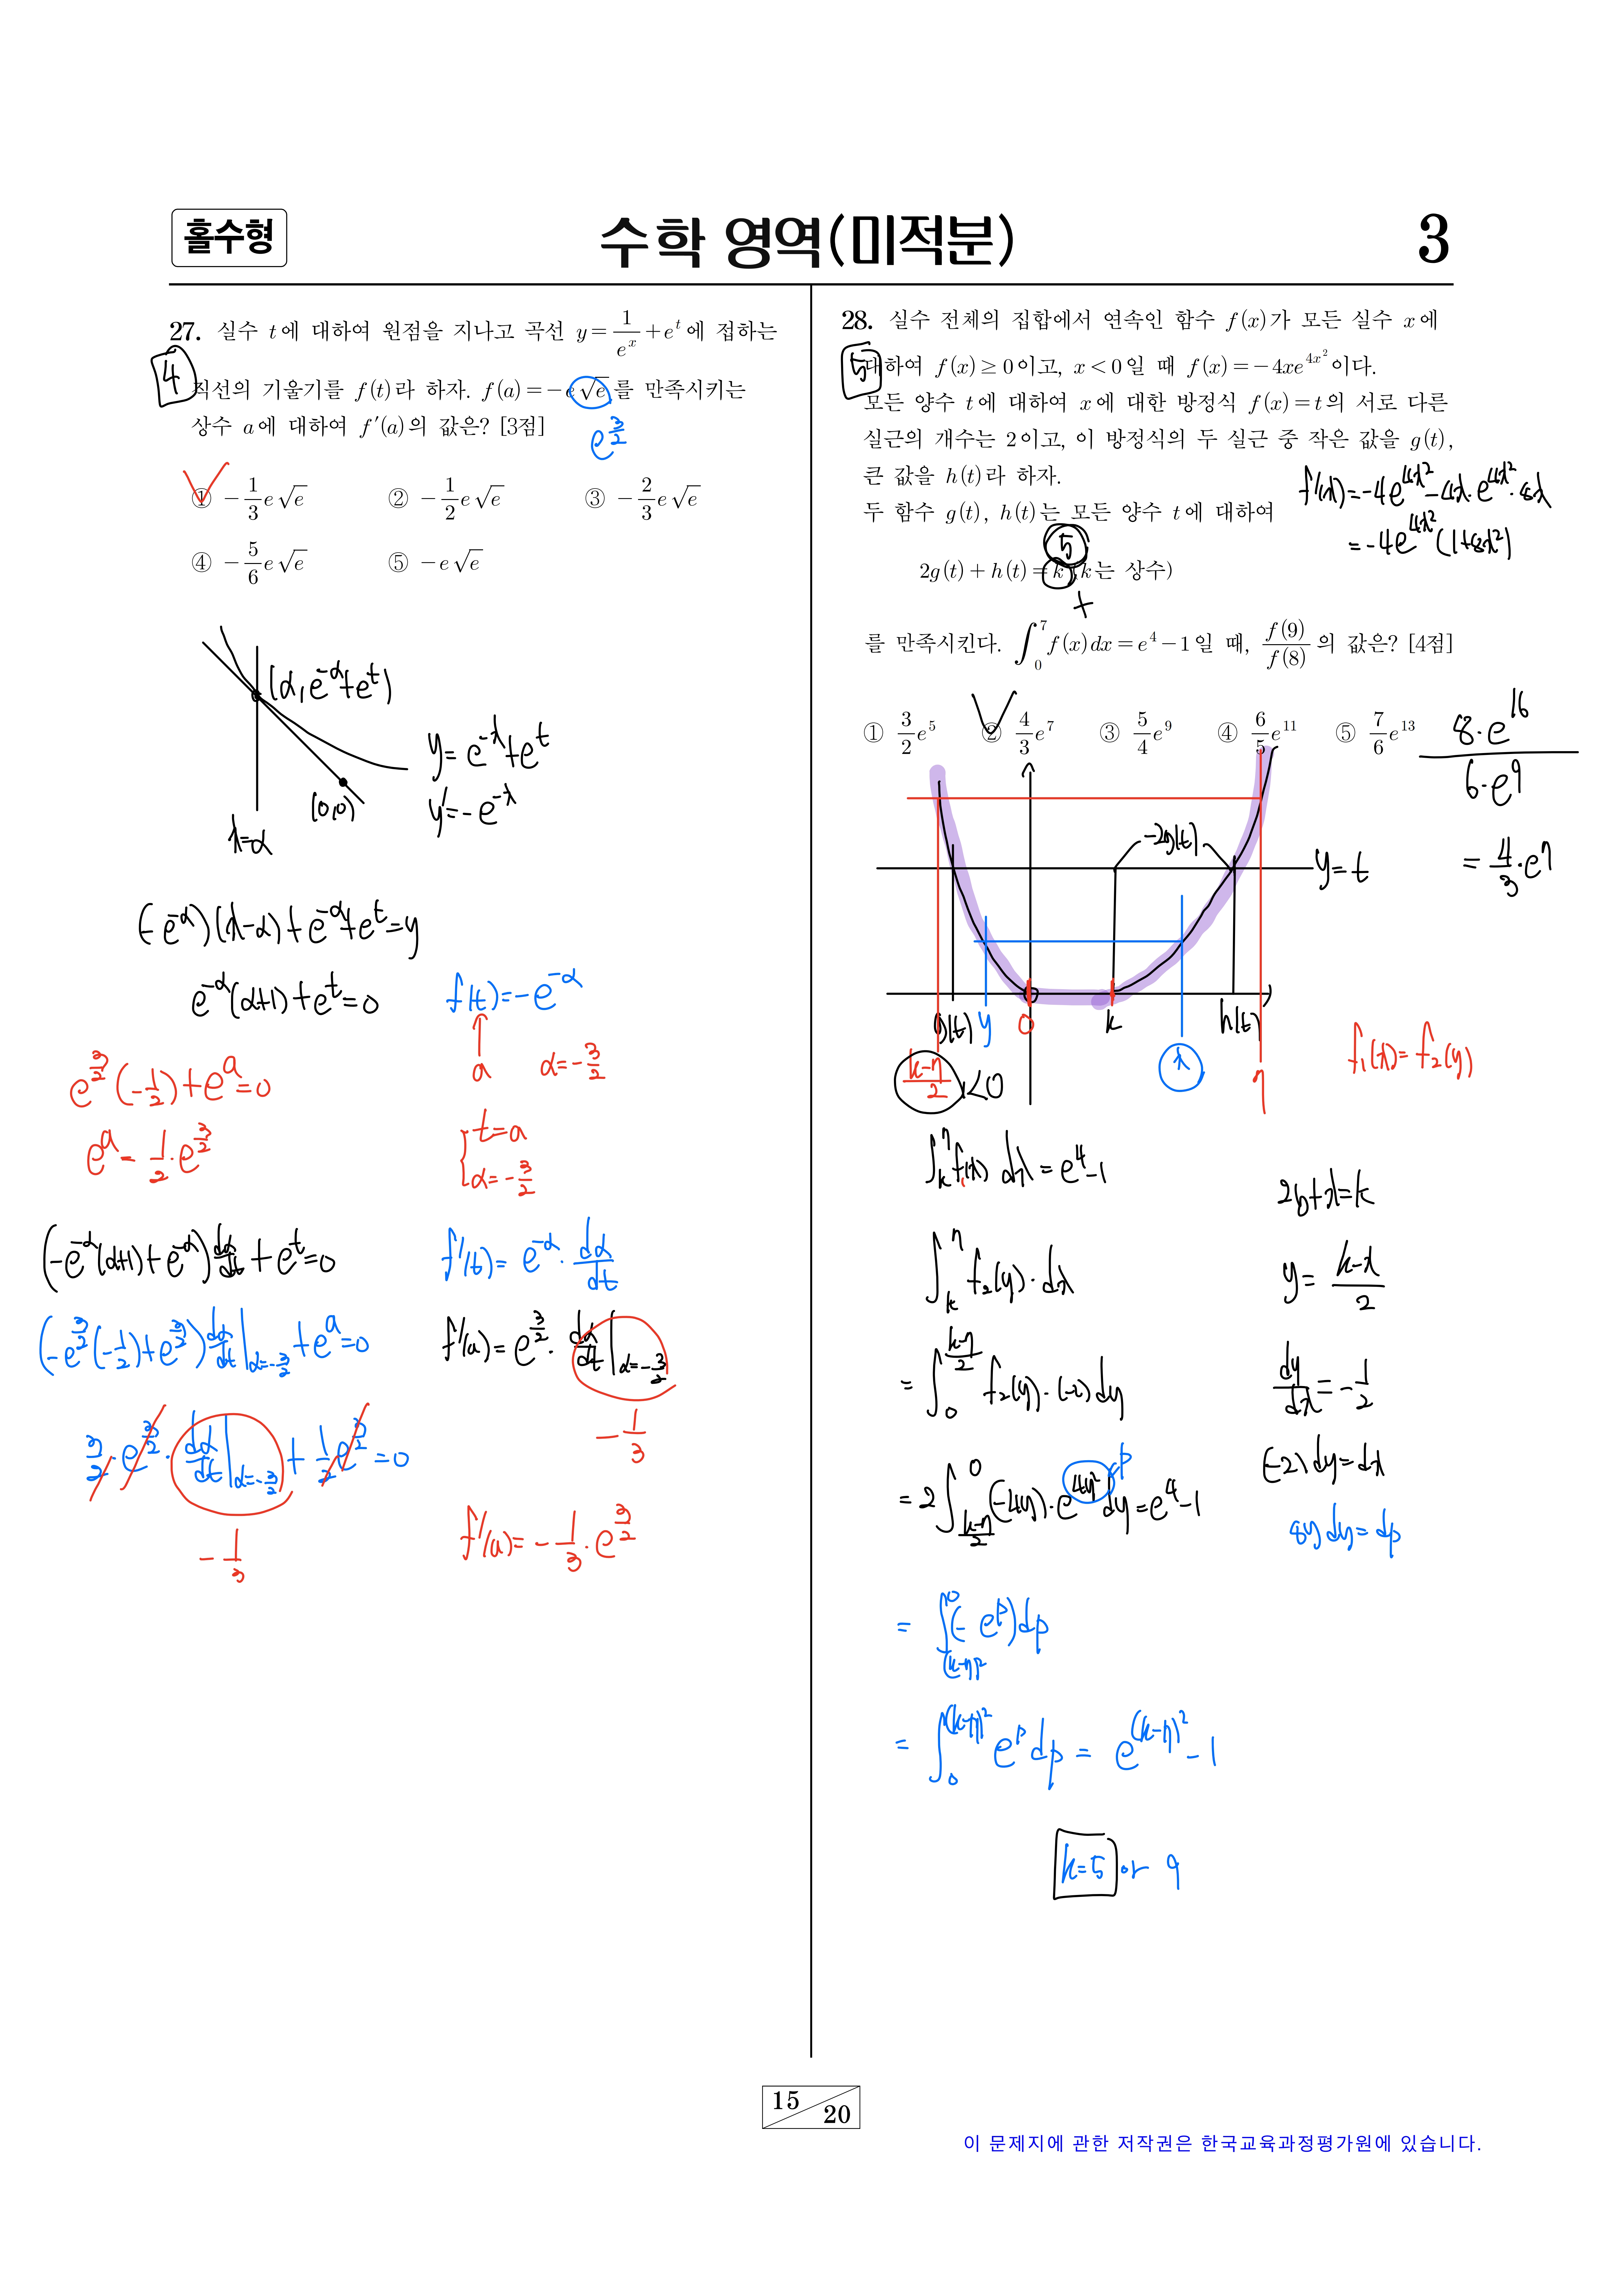 홀수형
수학 영역(미적분)
3
27. 실수 t에 대하여 원점을 지나고 곡선 y = 1/e^x + e^t 에 접하는
직선의 기울기를 f(t)라 하자. f(a) = -e√e 를 만족시키는
상수 a에 대하여 f'(a)의 값은? [3점]
4
e^(3/2)
① -1/3 e√e ② -1/2 e√e ③ -2/3 e√e
④ -5/6 e√e ⑤ -e√e
(α, e^(-α)+e^t)
(0,0)
x=α
y = e^(-x)+e^t
y' = -e^(-x)
(-e^(-α))(x-α)+e^(-α)+e^t=y
e^(-α)(α+1)+e^t=0
f(t)=-e^(-α)
a
α=-3/2
e^(3/2)(-1/2)+e^a=0
e^a=1/2·e^(3/2)
t=a
α=-3/2
(-e^(-α)(α+1)+e^(-α))dα/dt+e^t=0
f'(t)=e^(-α)·dα/dt
(-e^(3/2)(-1/2)+e^(3/2))dα/dt|α=-3/2+e^a=0
f'(a)=e^(3/2)·dα/dt|α=-3/2
-1/3
3/2·e^(3/2)·dα/dt|α=-3/2+1/2e^(3/2)=0
-1/3
f'(a)=-1/3·e^(3/2)
28. 실수 전체의 집합에서 연속인 함수 f(x)가 모든 실수 x에
대하여 f(x)≥0이고, x<0일 때 f(x)=-4xe^(4x²) 이다.
모든 양수 t에 대하여 x에 대한 방정식 f(x)=t의 서로 다른
실근의 개수는 2이고, 이 방정식의 두 실근 중 작은 값을 g(t),
큰 값을 h(t)라 하자.
두 함수 g(t), h(t)는 모든 양수 t에 대하여
2g(t)+h(t)=k (k는 상수)
를 만족시킨다. ∫_0^7 f(x)dx=e^4-1일 때, f(9)/f(8) 의 값은? [4점]
5
5
+
f'(x)=-4e^(4x²)-4x·e^(4x²)·8x
=-4e^(4x²)(1+8x²)
① 3/2 e^5 ② 4/3 e^7 ③ 5/4 e^9 ④ 6/5 e^11 ⑤ 7/6 e^13
8·e^16/6·e^9
=4/3·e^7
-2g(t)
y=t
g(t) y 0 k h(t)
(k-7)/2 <0
x
7
f₁(x)=f₂(y)
∫_k^7 f₁(x) dx=e^4-1
2y+x=k
∫_k^7 f₂(y)·dx
y=(k-x)/2
=∫_0^((k-7)/2) f₂(y)·(-2)dy
dy/dx=-1/2
(-2)dy=dx
=2∫_((k-7)/2)^0 (-4y)·e^(4y²)dy=e^4-1
p
8y dy=dp
=∫_((k-7)²)^0 (-e^p)dp
=∫_0^((k-7)²) e^p dp = e^((k-7)²)-1
k=5 or 9
15/20
이 문제지에 관한 저작권은 한국교육과정평가원에 있습니다.